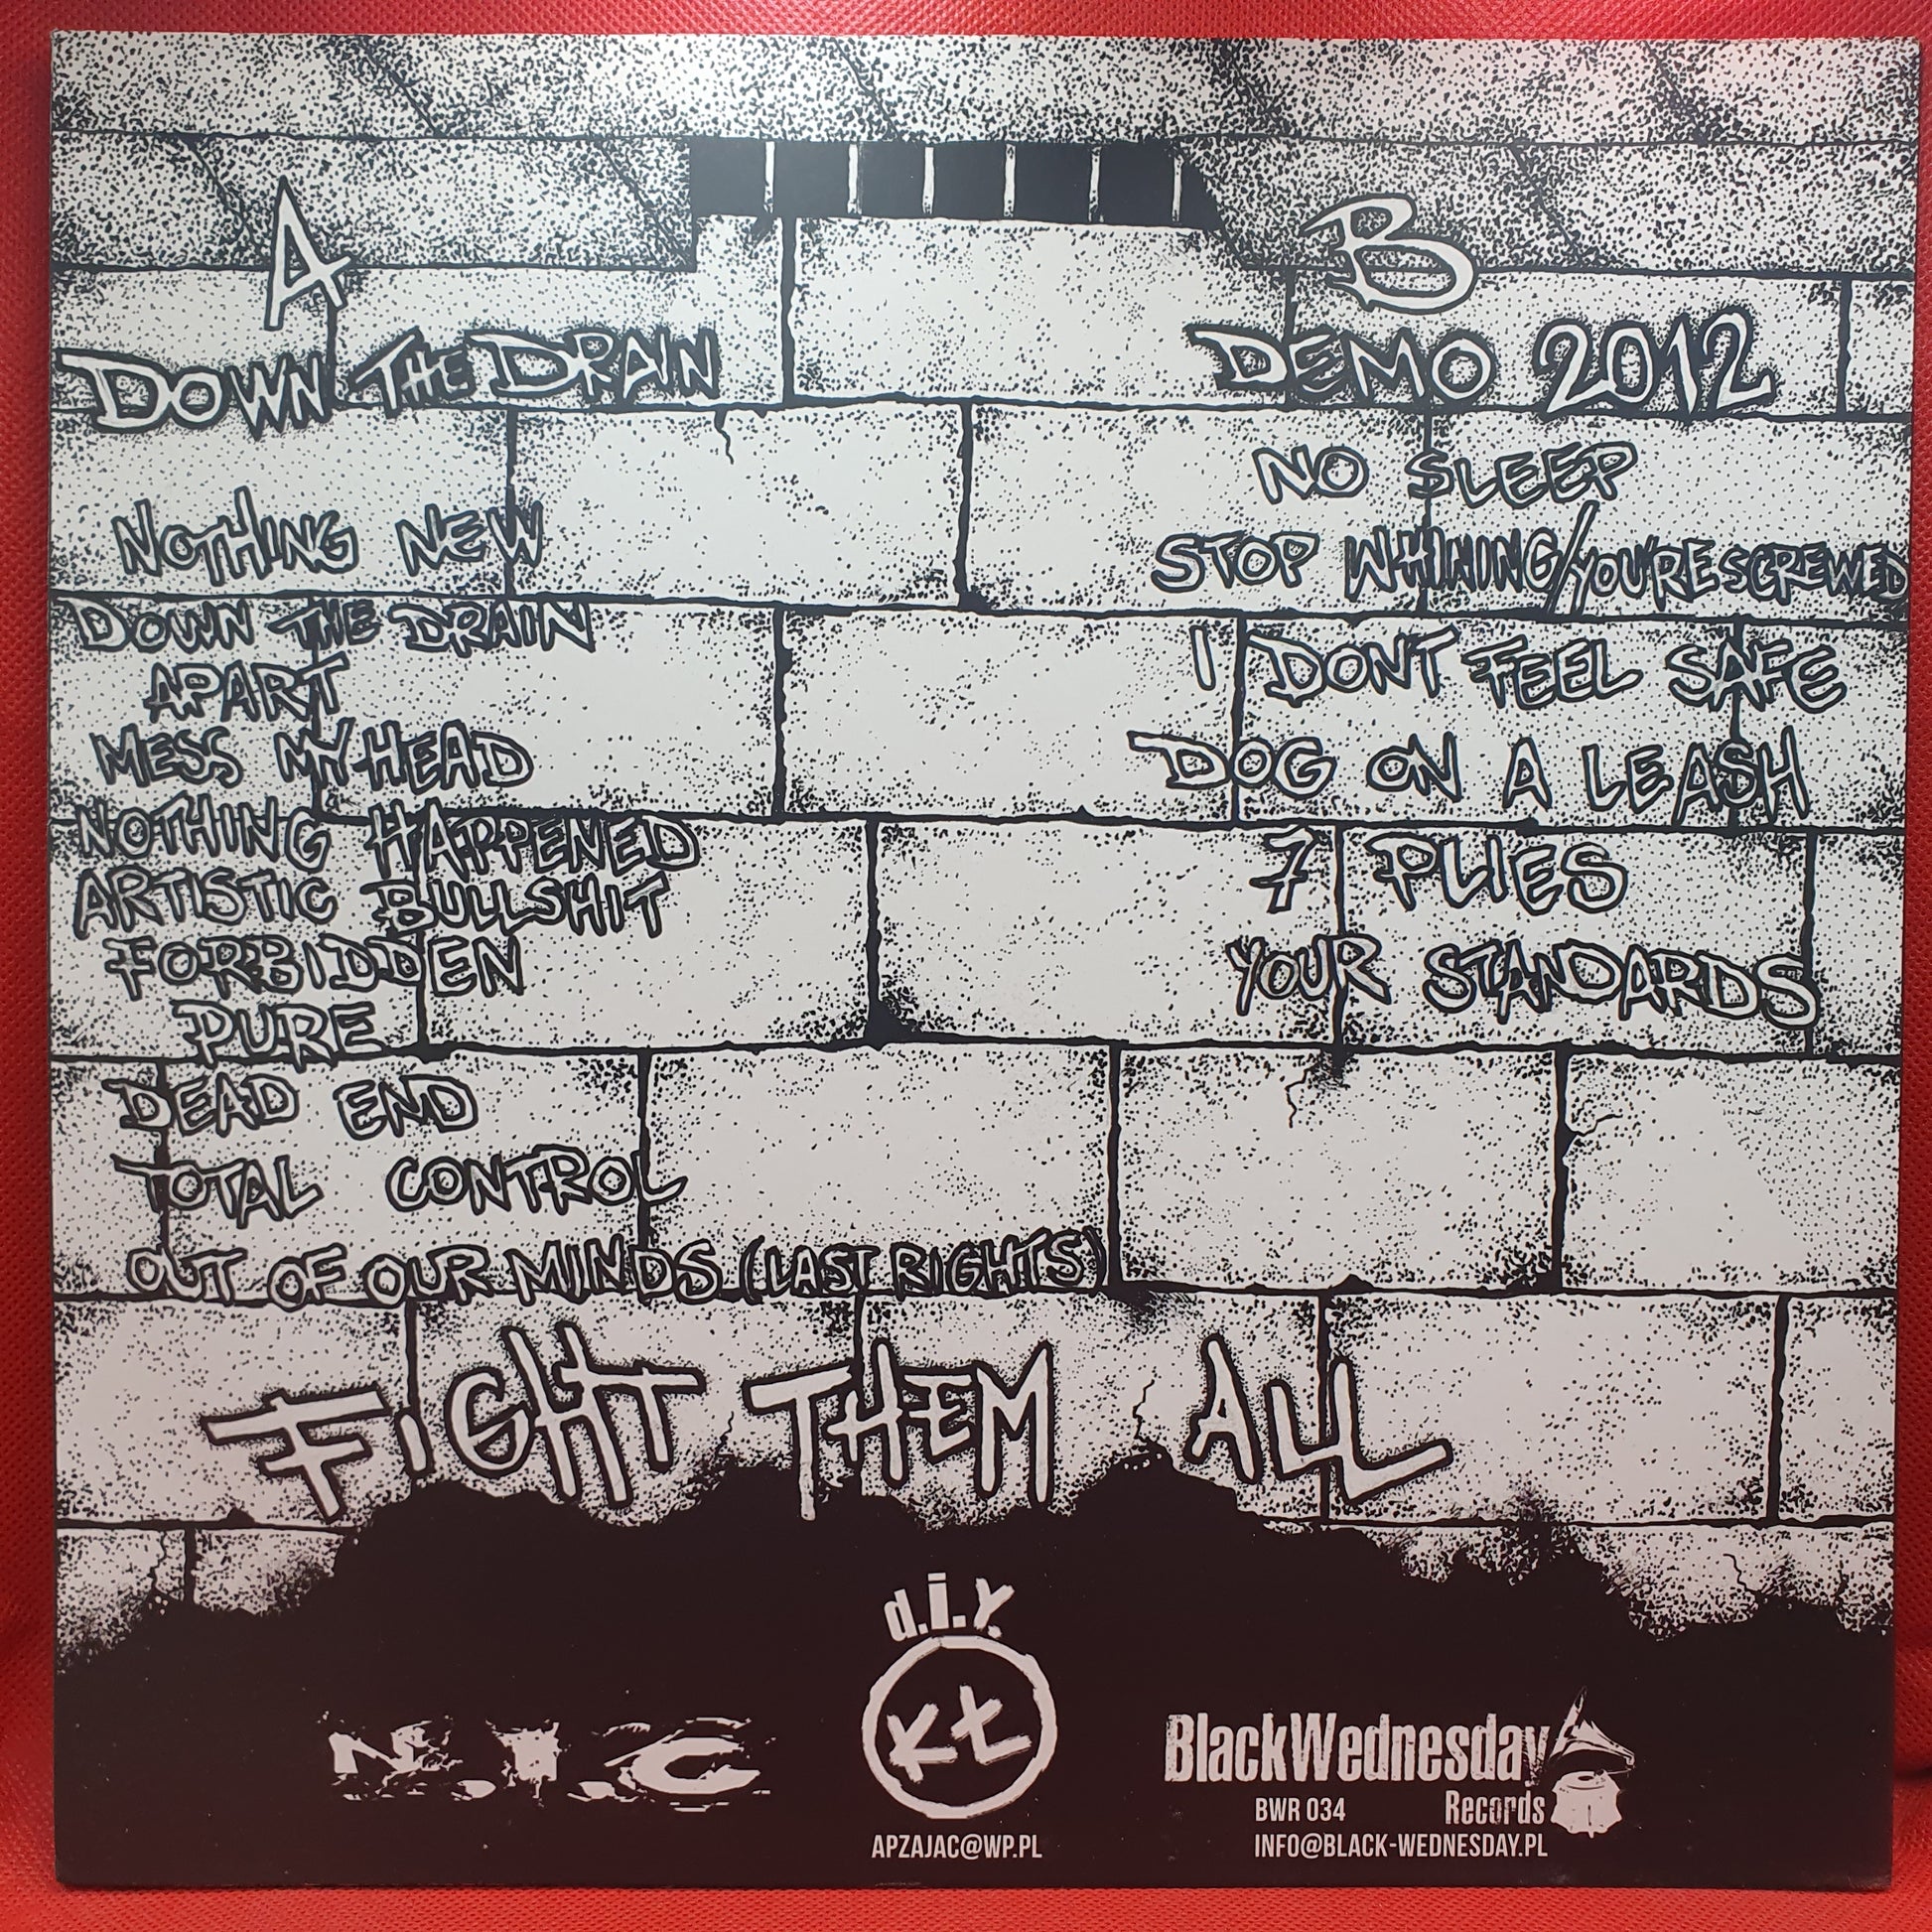 A
DOWN THE DRAIN
NOTHING NEW
DOWN THE DRAIN
APART
MESS MY HEAD
NOTHING HAPPENED
ARTISTIC BULLSHIT
FORBIDDEN
PURE
DEAD END
TOTAL CONTROL
OUT OF OUR MINDS (LAST RIGHTS)
B
DEMO 2012
NO SLEEP
STOP WHINING/YOU'RE SCREWED
I DON'T FEEL SAFE
DOG ON A LEASH
7 PLIES
YOUR STANDARDS
FIGHT THEM ALL
N.I.C
d.i.y.
KŁ
APZAJAC@WP.PL
BlackWednesday
Records
BWR 034
INFO@BLACK-WEDNESDAY.PL